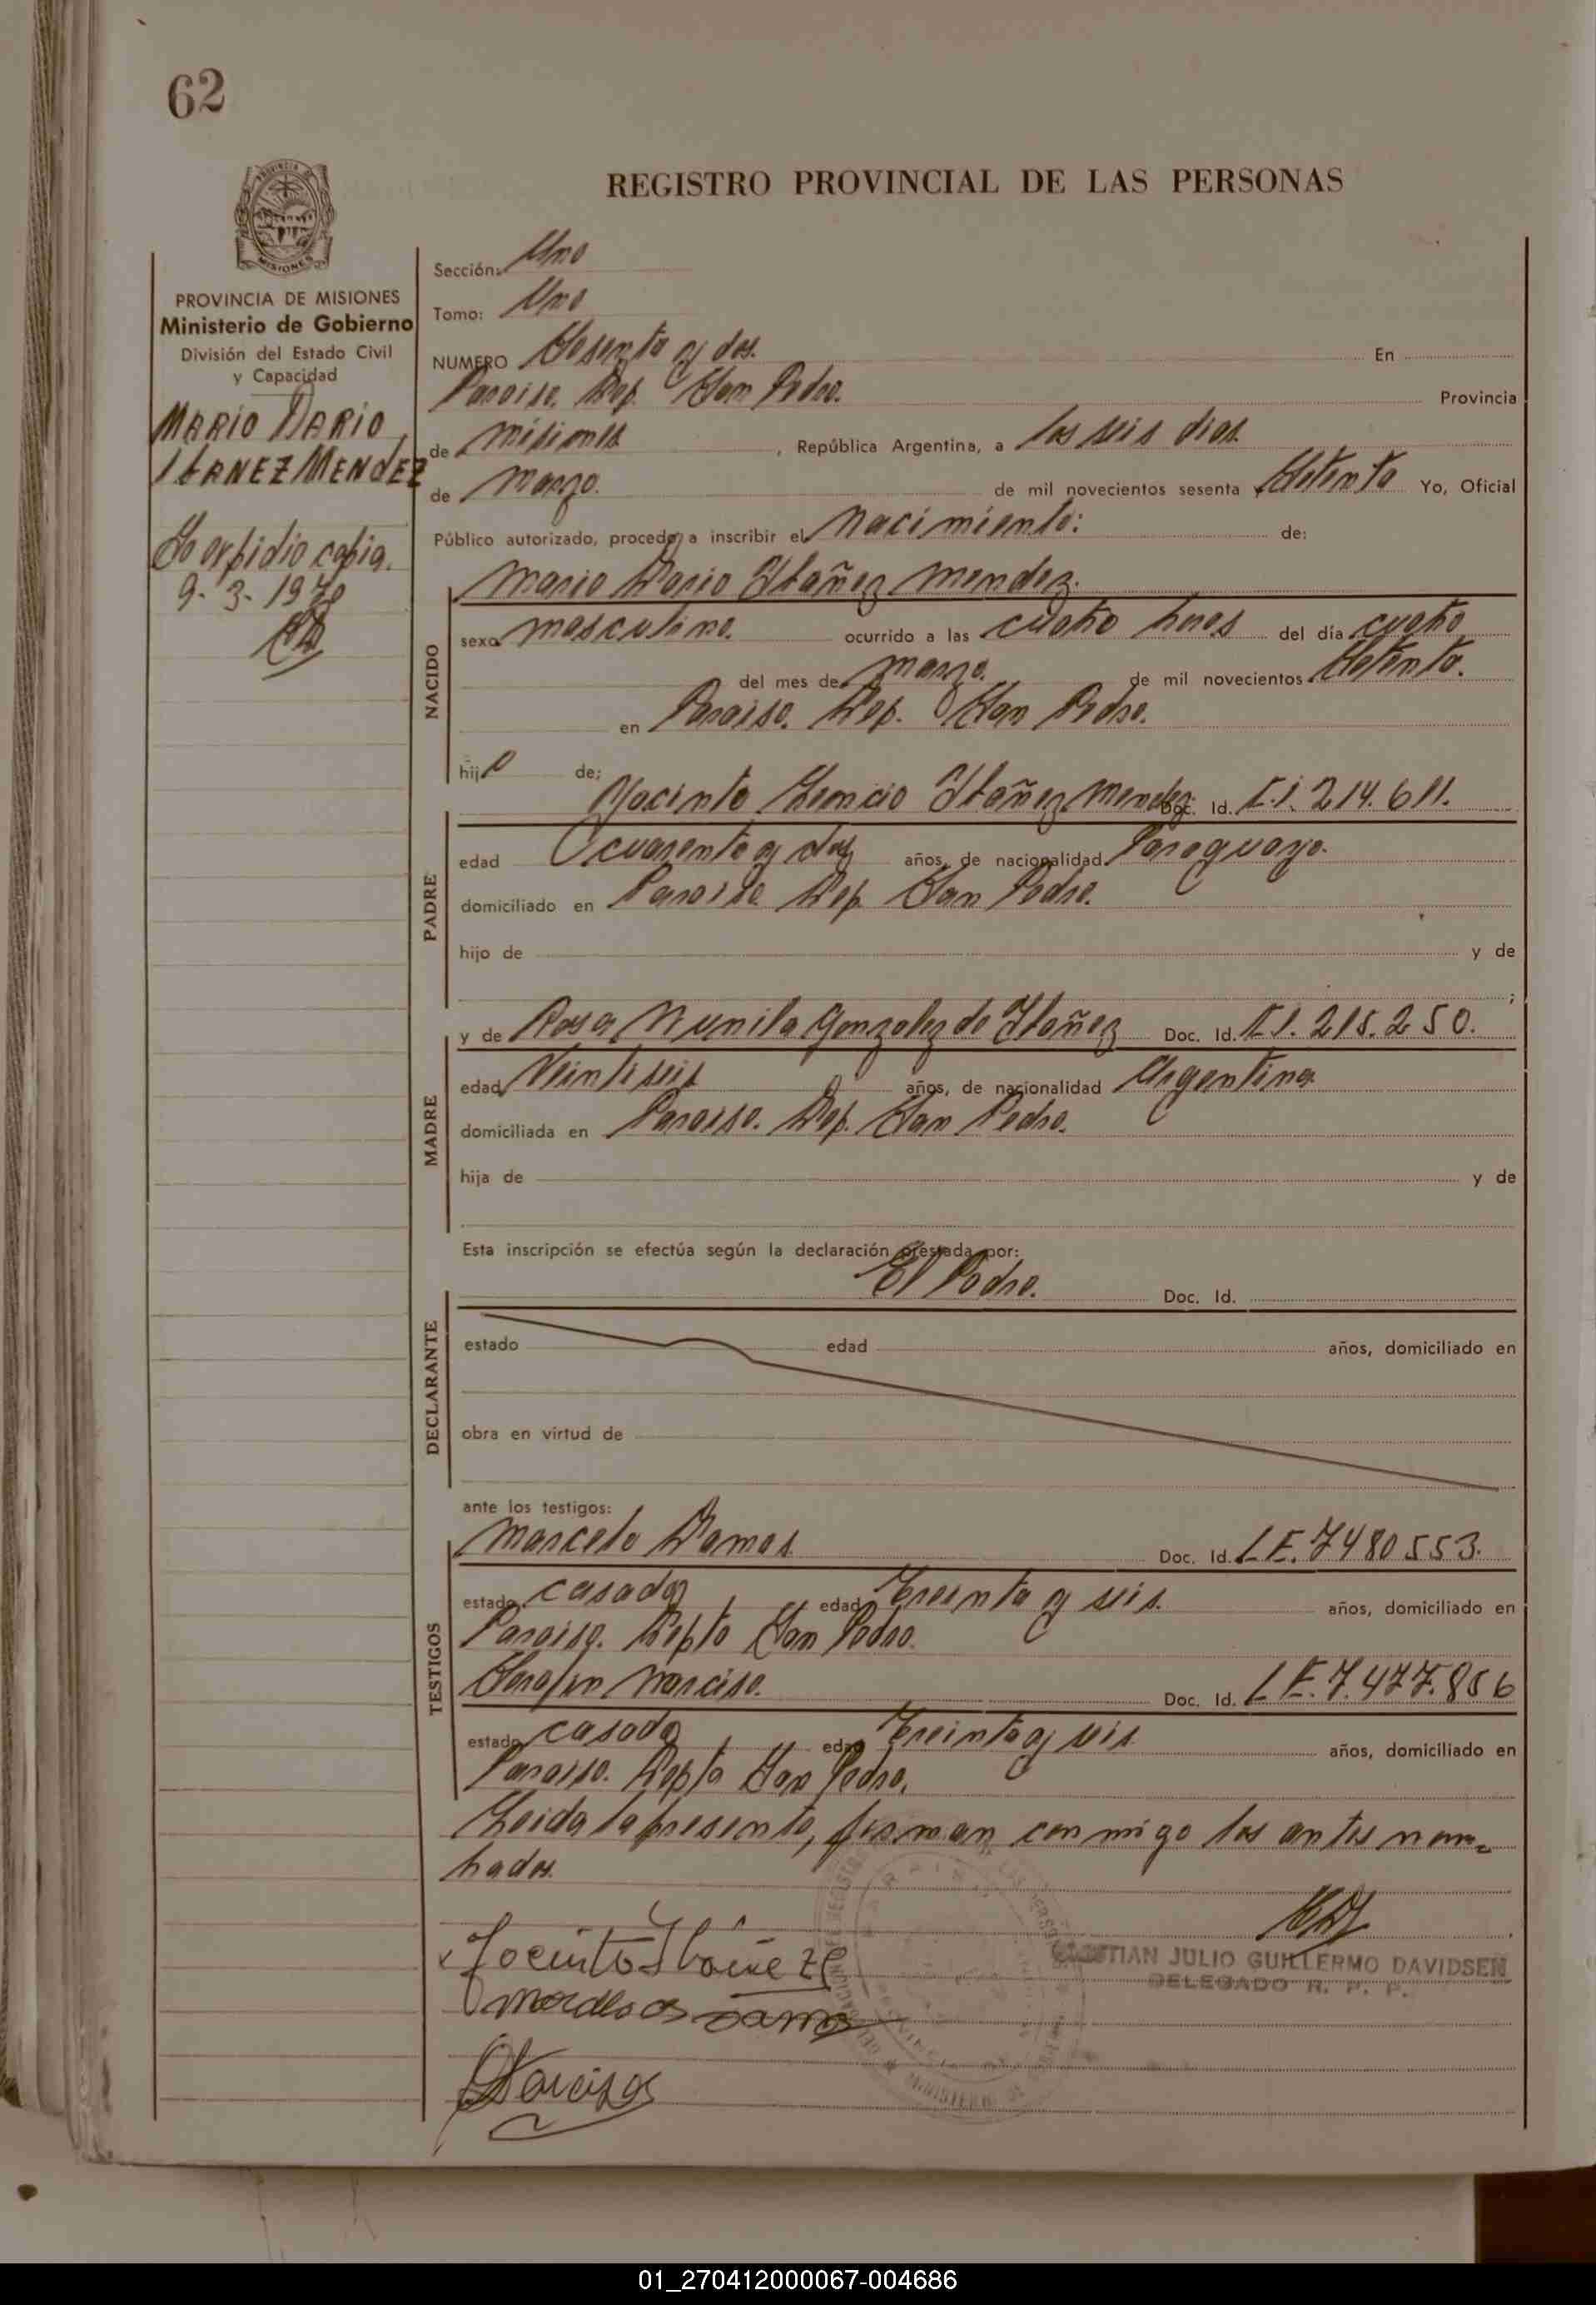 62
REGISTRO PROVINCIAL DE LAS PERSONAS
PROVINCIA DE MISIONES
Ministerio de Gobierno
División del Estado Civil
y Capacidad
MARIO DARIO
IBANEZ MENDEZ
Se expidio copia.
9-3-1970
Sección: Uno
Tomo: Uno
NUMERO Sesenta y dos. En
Paraiso. Dep. San Pedro. Provincia
de Misiones, República Argentina, a los seis dias
de Marzo. de mil novecientos sesenta Setenta Yo, Oficial
Público autorizado, procedo a inscribir el Nacimiento: de:
NACIDO
Mario Dario Ibañez Mendez.
sexo masculino. ocurrido a las cuatro horas del día cuatro
del mes de marzo. de mil novecientos Setenta.
en Paraiso. Dep. San Pedro.
hijo de;
PADRE
Jacinto Lencio Ibañez Mendez Doc. Id. C.I. 214.611.
edad cuarenta y dos años, de nacionalidad Paraguayo.
domiciliado en Paraiso Dep. San Pedro.
hijo de y de
;
MADRE
y de Rosa Nunila Gonzalez de Ibañez Doc. Id. C.I. 215.250.
edad Veintiseis años, de nacionalidad Argentina
domiciliada en Paraiso. Dep. San Pedro.
hija de y de
Esta inscripción se efectúa según la declaración prestada por:
El Padre. Doc. Id.
DECLARANTE
estado edad años, domiciliado en
obra en virtud de
ante los testigos:
TESTIGOS
Marcelo Damas Doc. Id. L.E. 7480553.
estado casado, edad Treinta y seis. años, domiciliado en
Paraiso. Depto San Pedro.
Serafin Narciso. Doc. Id. L.E. 7.477.856
estado casado, edad Treinta y seis años, domiciliado en
Paraiso. Depto San Pedro.
Leida la presente, firman conmigo los antes nom-
brados.
Jacinto Ibañez
CRISTIAN JULIO GUILLERMO DAVIDSEN
DELEGADO R. P. P.
Narciso
01_270412000067-004686